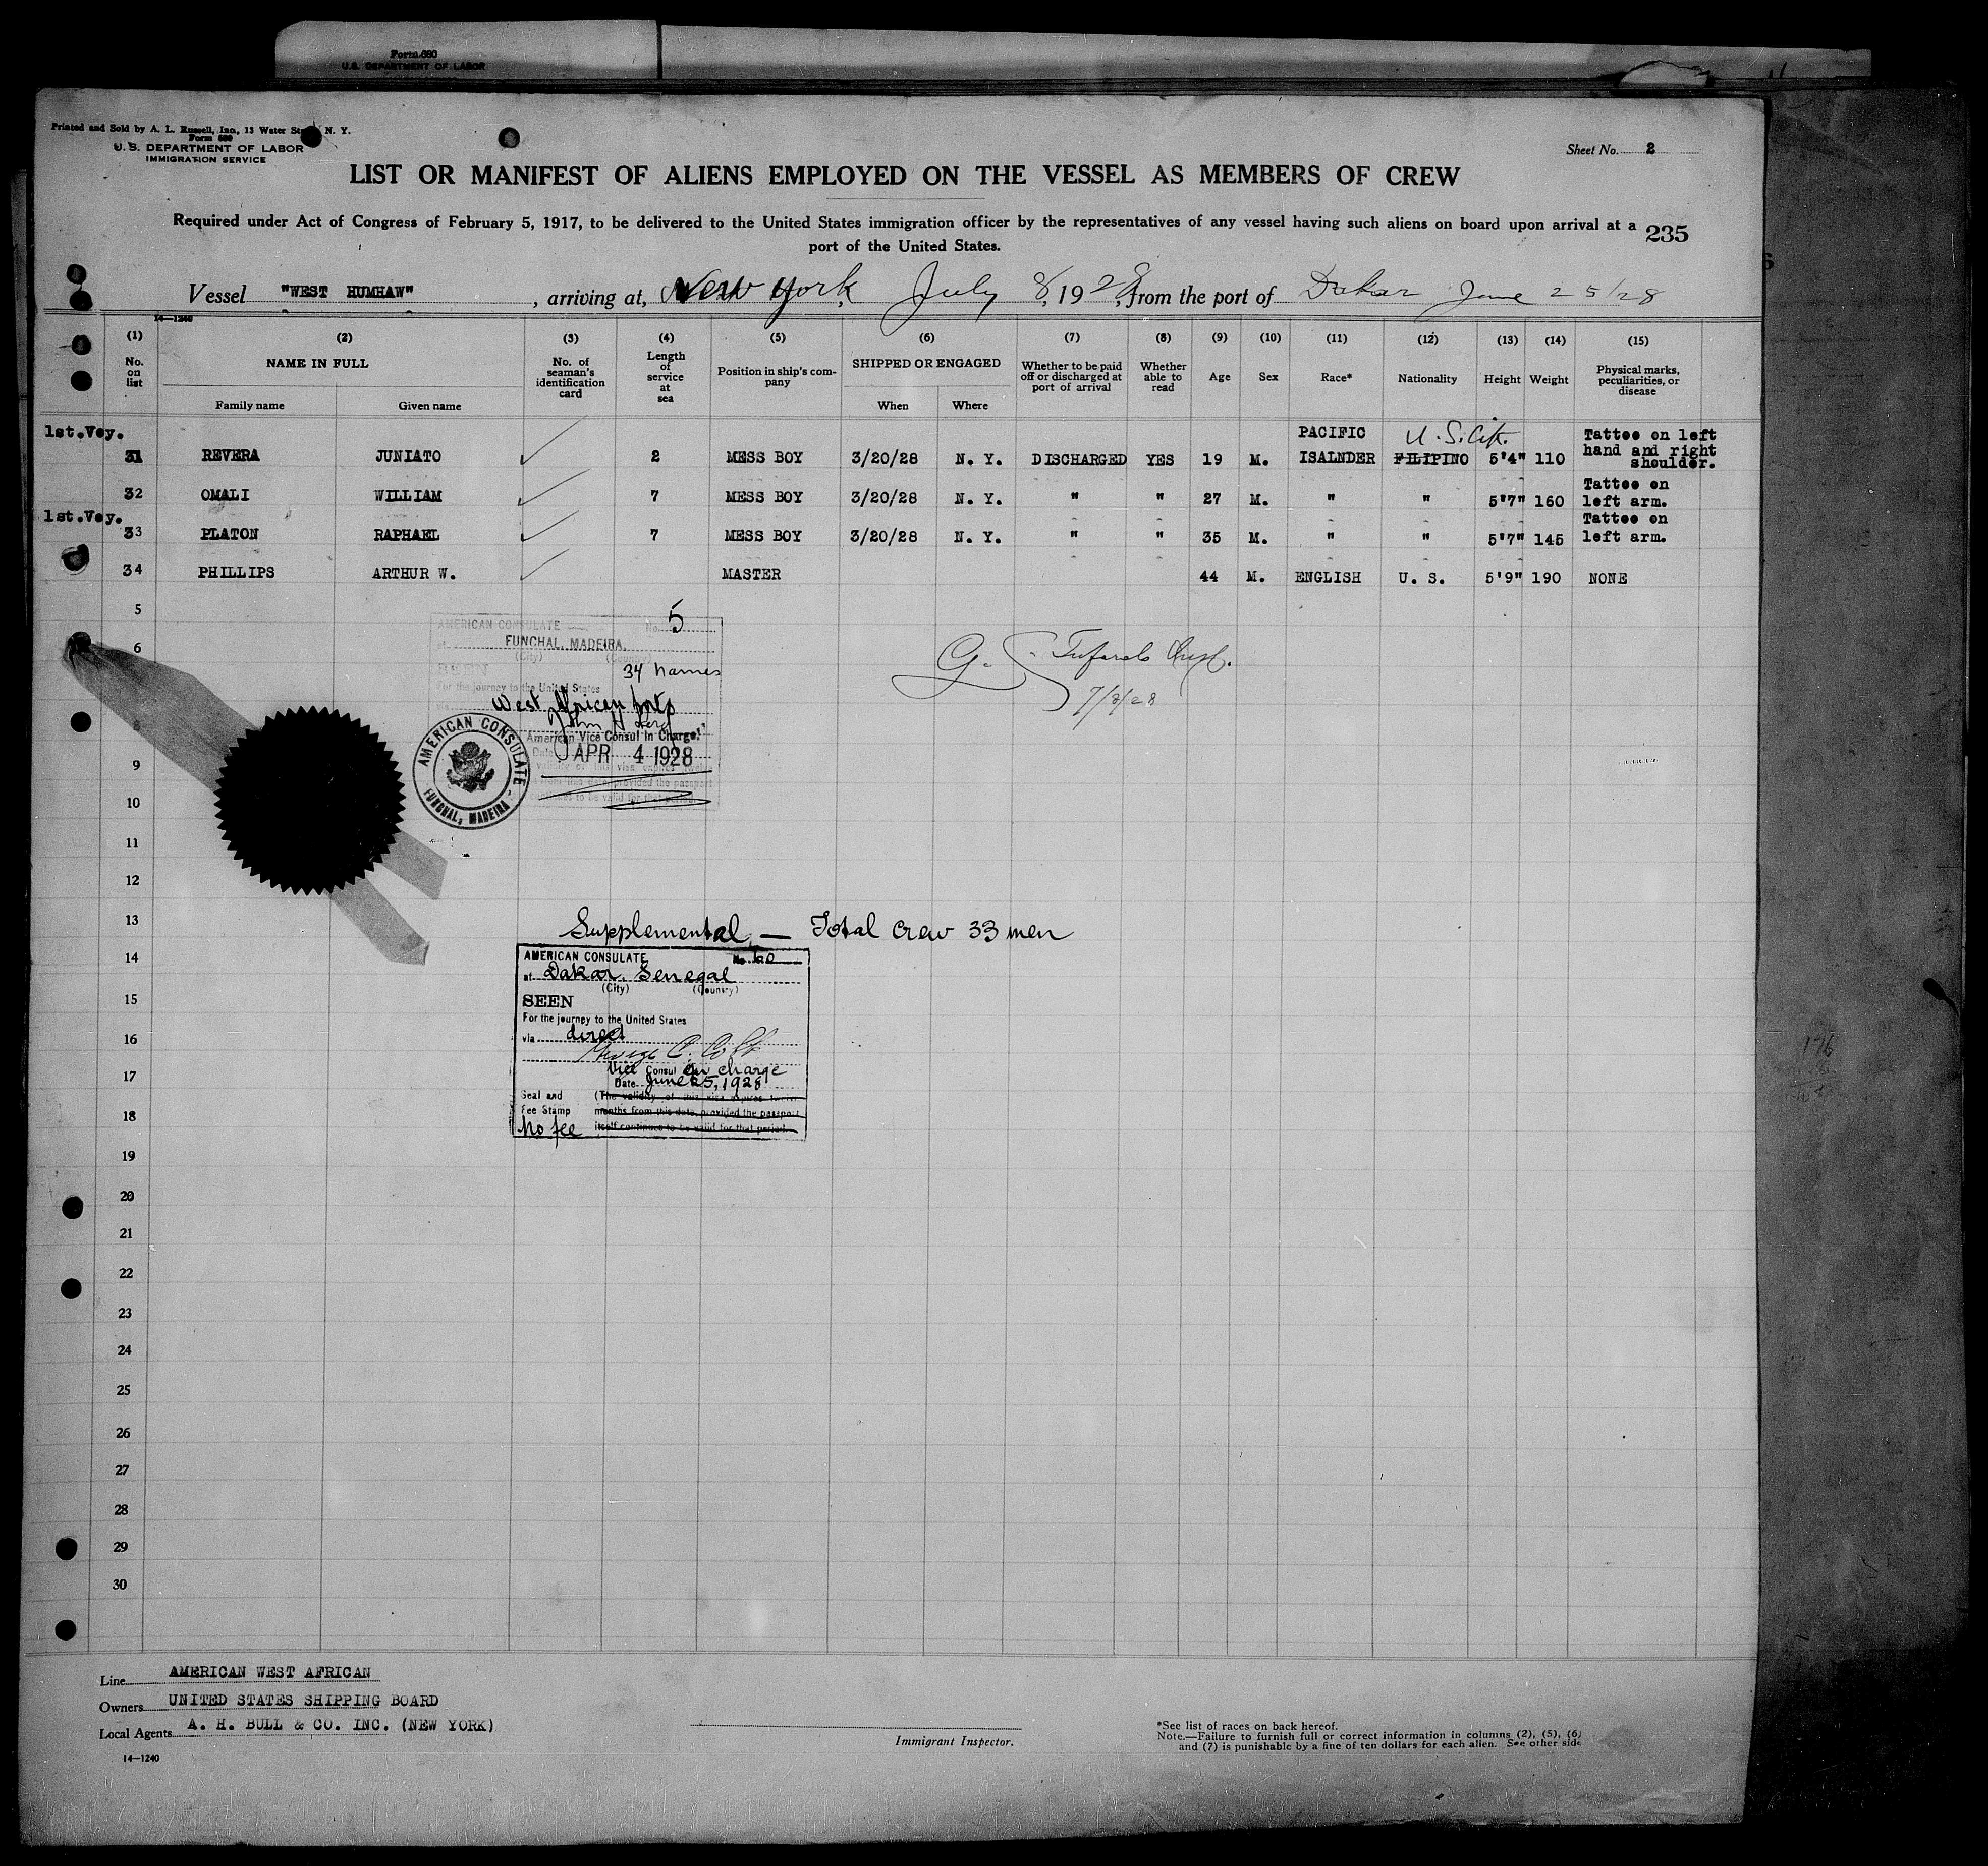 Form 680
U.S. DEPARTMENT OF LABOR
Printed and Sold by A. L. Russell, Inc., 13 Water St N. Y.
Form 680
U. S. DEPARTMENT OF LABOR
IMMIGRATION SERVICE
Sheet No. 2
LIST OR MANIFEST OF ALIENS EMPLOYED ON THE VESSEL AS MEMBERS OF CREW
Required under Act of Congress of February 5, 1917, to be delivered to the United States immigration officer by the representatives of any vessel having such aliens on board upon arrival at a
port of the United States.
235
Vessel "WEST HUMHAW", arriving at, New York, July 8, 1928, from the port of Dakar June 25/28
14—1240
(1) (2) (3) (4) (5) (6) (7) (8) (9) (10) (11) (12) (13) (14) (15)
No. on list NAME IN FULL No. of seaman's identification card Length of service at sea Position in ship's company SHIPPED OR ENGAGED Whether to be paid off or discharged at port of arrival Whether able to read Age Sex Race* Nationality Height Weight Physical marks, peculiarities, or disease
Family name Given name When Where
1st.Voy. PACIFIC U.S. Cit. Tattoo on left
31 REVERA JUNIATO 2 MESS BOY 3/20/28 N. Y. DISCHARGED YES 19 M. ISALNDER FILIPINO 5'4" 110 hand and right
shoulder.
32 OMALI WILLIAM 7 MESS BOY 3/20/28 N. Y. " " 27 M. " " 5'7" 160 Tattoo on
left arm.
1st.Voy. Tattoo on
33 PLATON RAPHAEL 7 MESS BOY 3/20/28 N. Y. " " 35 M. " " 5'7" 145 left arm.
34 PHILLIPS ARTHUR W. MASTER 44 M. ENGLISH U. S. 5'9" 190 NONE
5
6
8
9
10
11
12
13
14
15
16
17
18
19
20
21
22
23
24
25
26
27
28
29
30
AMERICAN CONSULATE No. 5
at FUNCHAL, MADEIRA.
(City) (Country)
SEEN 34 names
For the journey to the United States
via West African ports
John H
American Vice Consul in Charge.
Date APR 4 1928
AMERICAN CONSULATE
FUNCHAL, MADEIRA
G. S. Inspt.
7/8/28
Supplemental — Total crew 33 men
AMERICAN CONSULATE No. 60
at Dakar, Senegal
(City) (Country)
SEEN
For the journey to the United States
via direct
George C. Cobb
Vice Consul in charge
Date June 25, 1928
Seal and (The validity of this visa expires twelve
Fee Stamp months from this date, provided the passport
No fee itself continues to be valid for that period.
176
Line AMERICAN WEST AFRICAN
Owners UNITED STATES SHIPPING BOARD
Local Agents A. H. BULL & CO. INC. (NEW YORK)
14—1240
Immigrant Inspector.
*See list of races on back hereof.
Note.—Failure to furnish full or correct information in columns (2), (5), (6)
and (7) is punishable by a fine of ten dollars for each alien. See other side